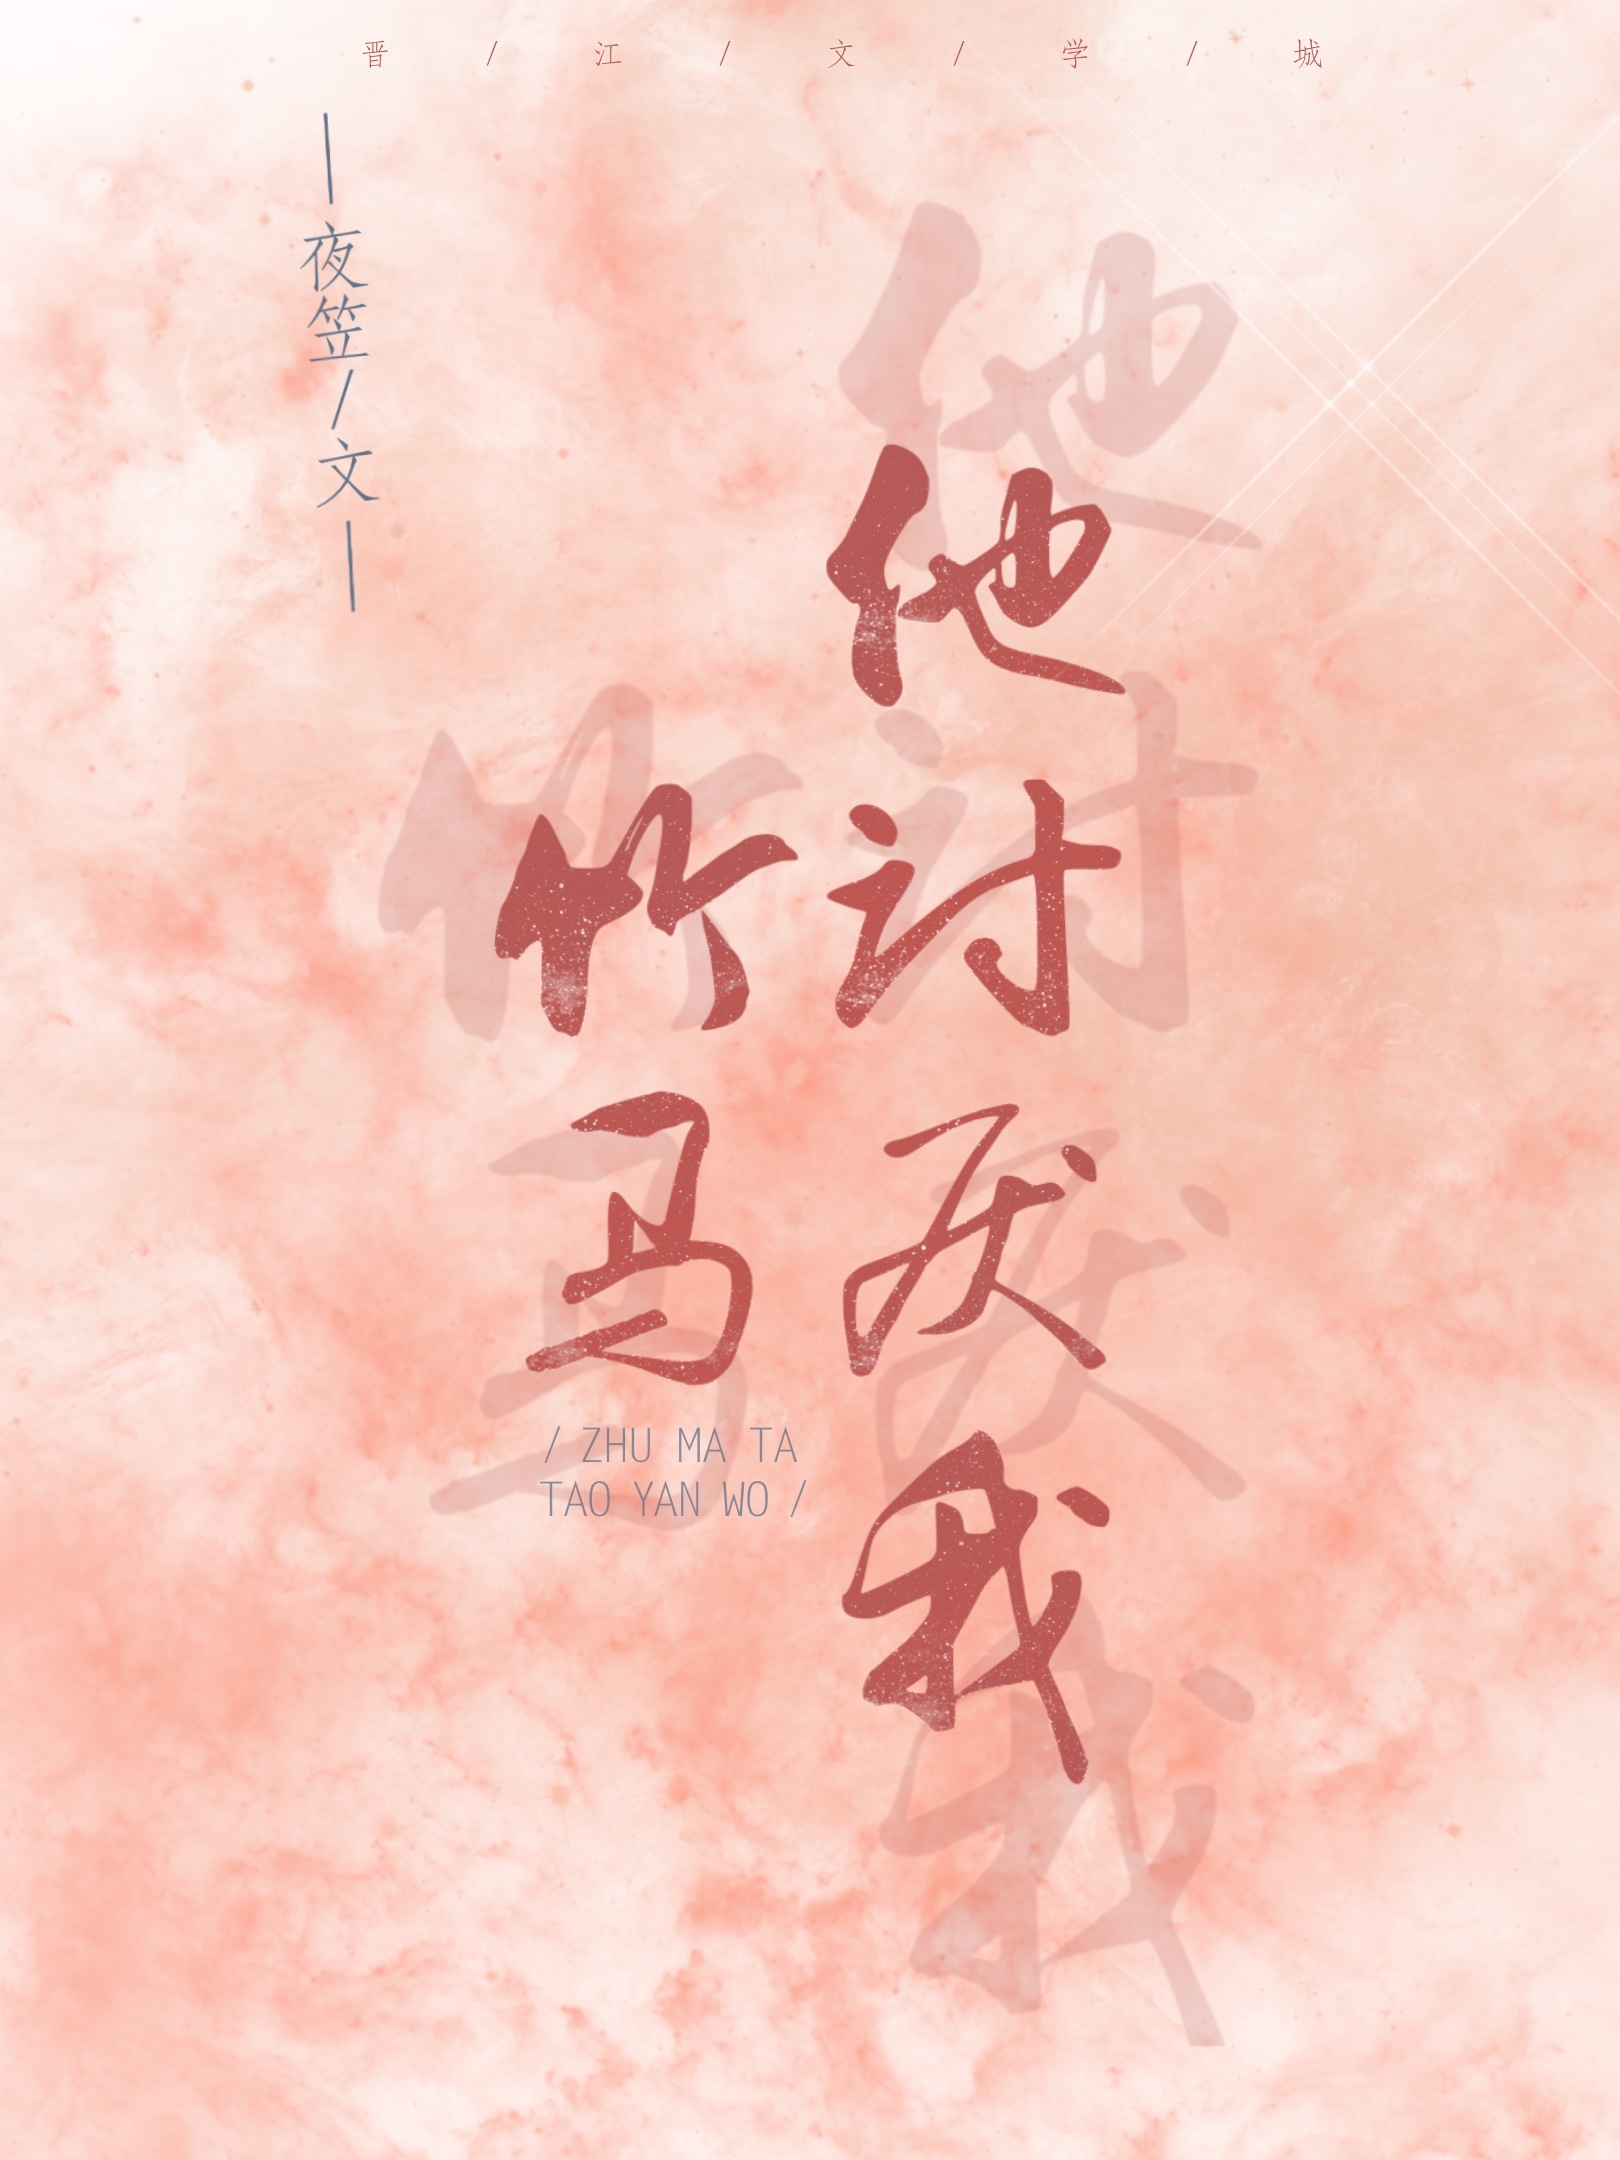 晋/江/文/学/城
夜笠/文
竹马
他讨厌我
/ ZHU MA TA
TAO YAN WO /